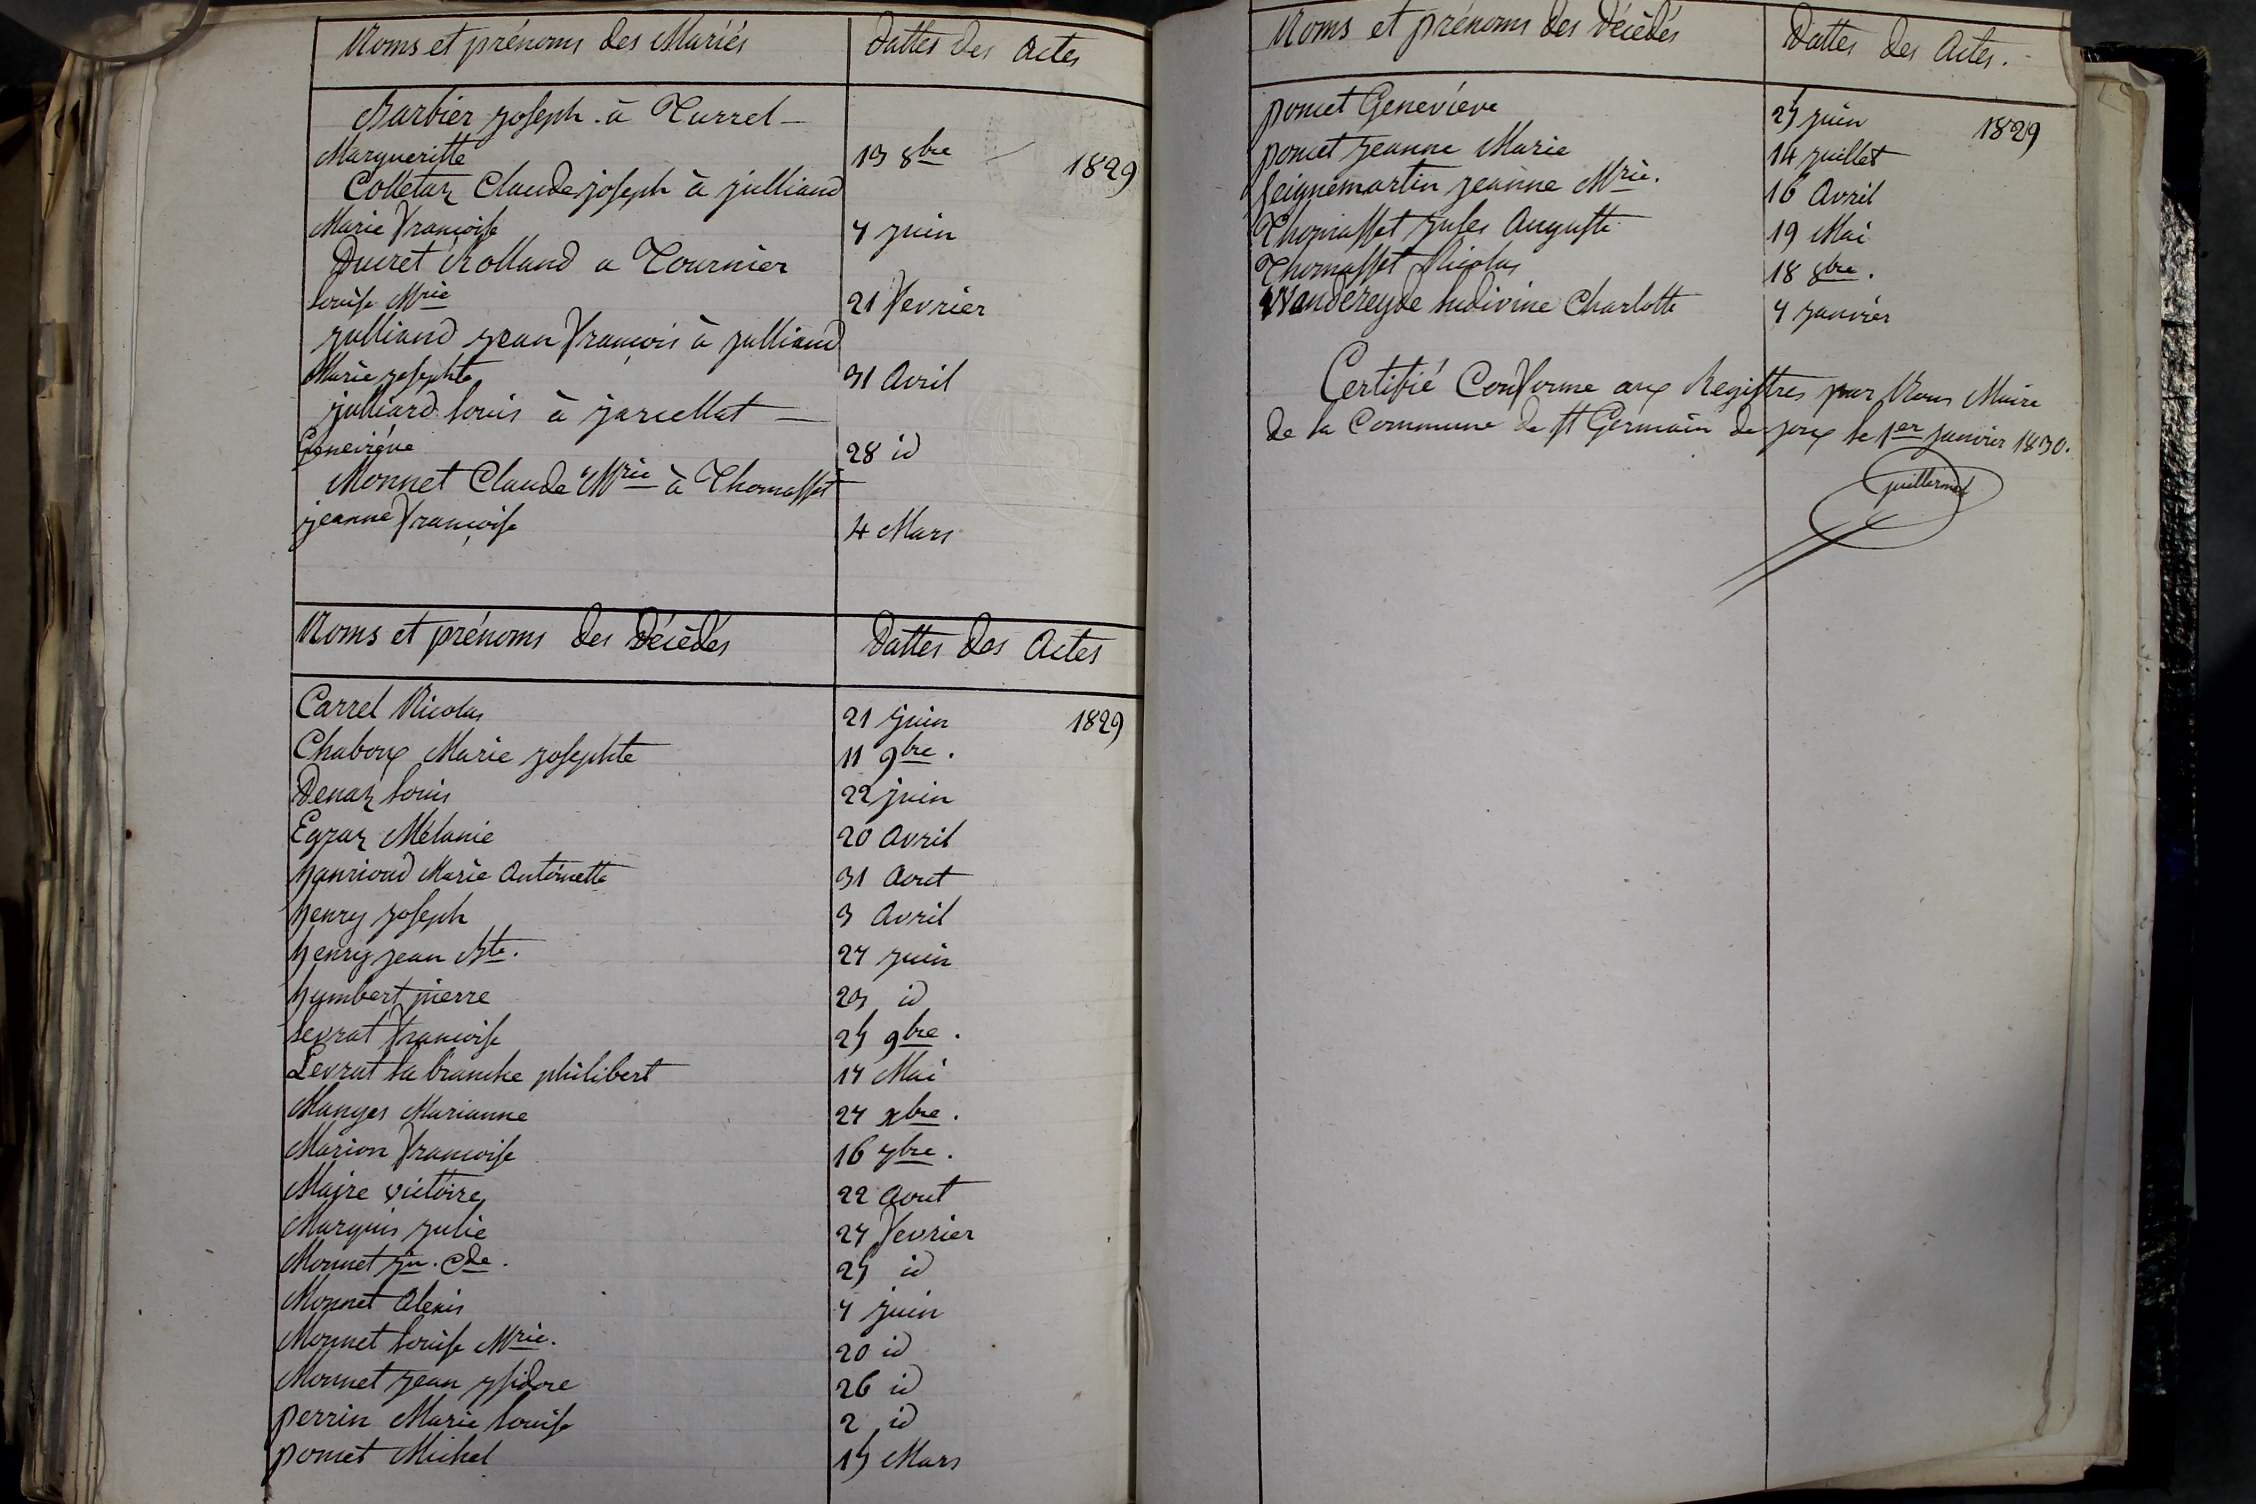 Noms et prénoms des Mariés Dattes des Actes
Barbier joseph à Turrel
Margueritte 13 8bre 1829
Colletaz Claude joseph à julliand
Marie françoise 7 juin
Ducret Rolland a Tournier
Louise Mrie 21 fevrier
julliand jean françois à julliand
Marie josephte 31 Avril
julliard Louis à jarcellat
Genevièue 28 id
Monnet Claude Mrie à Thomasset
jeanne françoise 4 Mars
Noms et prénoms des Décèdés Dattes des Actes
Carrel Nicolas 21 juin 1829
Chaboux Marie josephte 11 9bre.
Denaz Louis 22 juin
Egraz Mélanie 20 Avril
hanrioud Marie Antoinette 31 Aout
henry joseph 3 Avril
henry jean Bte. 27 juin
humbert pierre 23 id
Levrat françoise 25 9bre.
Levrat La branche philibert 17 Mai
Manges Marianne 27 xbre.
Marion françoise 16 7bre.
Maire victoire 22 Aout
Marquis julie 27 fevrier
Monnet jn. Cde. 25 id
Monnet Alexis 7 juin
Monnet Louise Mrie. 20 id
Monnet jean ysidore 26 id
perrin Marie Louise 2 id
poncet Michel 15 Mars
Noms et prénoms des Décèdés Dattes des Actes.
poncet Geneviève 25 juin 1829
poncet jeanne Marie 14 juillet
Seignemartin jeanne Mrie. 16 Avril
Thomasset jules Auguste 19 Mai
Thomasset Nicolas 18 8bre.
Vandereyde Ludivine Charlotte 7 janvier
Certifié Conforme aux Registres par Nous Maire
de la Commune de St Germain de joux le 1er janvier 1830.
guillermet